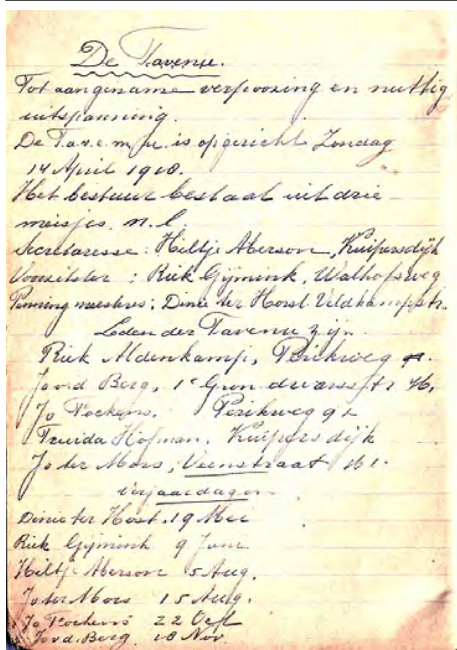 De Tavenu.
Tot aangename verpoozing en nuttig
uitspanning.
De T.a.v.e.n.u. is opgericht Zondag
14 April 1918.
Het bestuur bestaat uit drie
meisjes. n.l
Secretaresse: Hiltje Aberson, Kuipersdijk
Voorzitster : Riek Gijmink, Walhofsweg
Penningmeesteres: Dinie ter Horst. Veldkampstr.
Leden der Tavenu zijn.
Riek Aldenkamp, Perikweg
Jo v.d Berg, 1e
Jo Fockens. Perikweg
Truida Hofman. Kuipersdijk
Jo ter Mors, Veenstraat 161.
Verjaardagen
Dinie ter Horst. 19 Mei
Riek Gijmink 9 Juni
Hiltje Aberson 5 Aug.
Jo ter Mors 15 Aug.
Jo Fockens 22 Oct
Jo v.d. Berg 18 Nov.